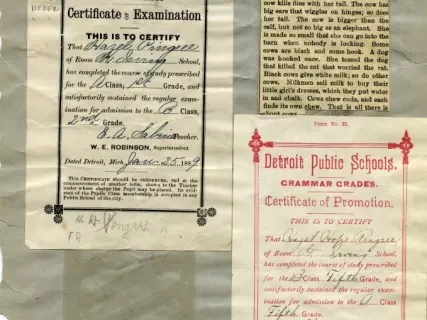 DEPEE
Certificate of Examination
THIS IS TO CERTIFY
That Hazel Pingree
of Room Irving School,
has completed the course of study prescribed
for the A Class, 1st Grade, and
satisfactorily sustained the regular exami-
nation for admission to the B Class,
2nd Grade.
E. A. Teacher.
W. E. ROBINSON, Superintendent
Dated Detroit, Mich. Jan. 25, 1889
THIS CERTIFICATE should be preserved, and at the
commencement of another term, shown to the Teacher
under whose charge the Pupil may be placed. Its evid-
ence of the Pupils Class membership is accepted in any
Public School of the city.
Pingree
FR
cow kills flies with her tail. The cow has
big ears that wiggles on hinges; so does
her tail. The cow is bigger than the
calf, but not so big as an elephant. She
is made so small that she can go into the
barn when nobody is looking. Some
cows are black and some hook. A dog
was hooked once. She tossed the dog
that killed the cat that worried the rat.
Black cows give white milk; so do other
cows. Milkmen sell milk to buy their
little girl's dresses, which they put water
in and chalk. Cows chew cuds, and each
finds its own chew. That is all there is
about cows.
Form No. 11.
Detroit Public Schools.
GRAMMAR GRADES.
Certificate of Promotion.
THIS IS TO CERTIFY
That Hazel Pingree
of Room 6 Irving School,
has completed the course of study prescribed
for the B Class Fifth Grade, and
satisfactorily sustained the regular exam-
ination for admission to the A Class
Fifth Grade.